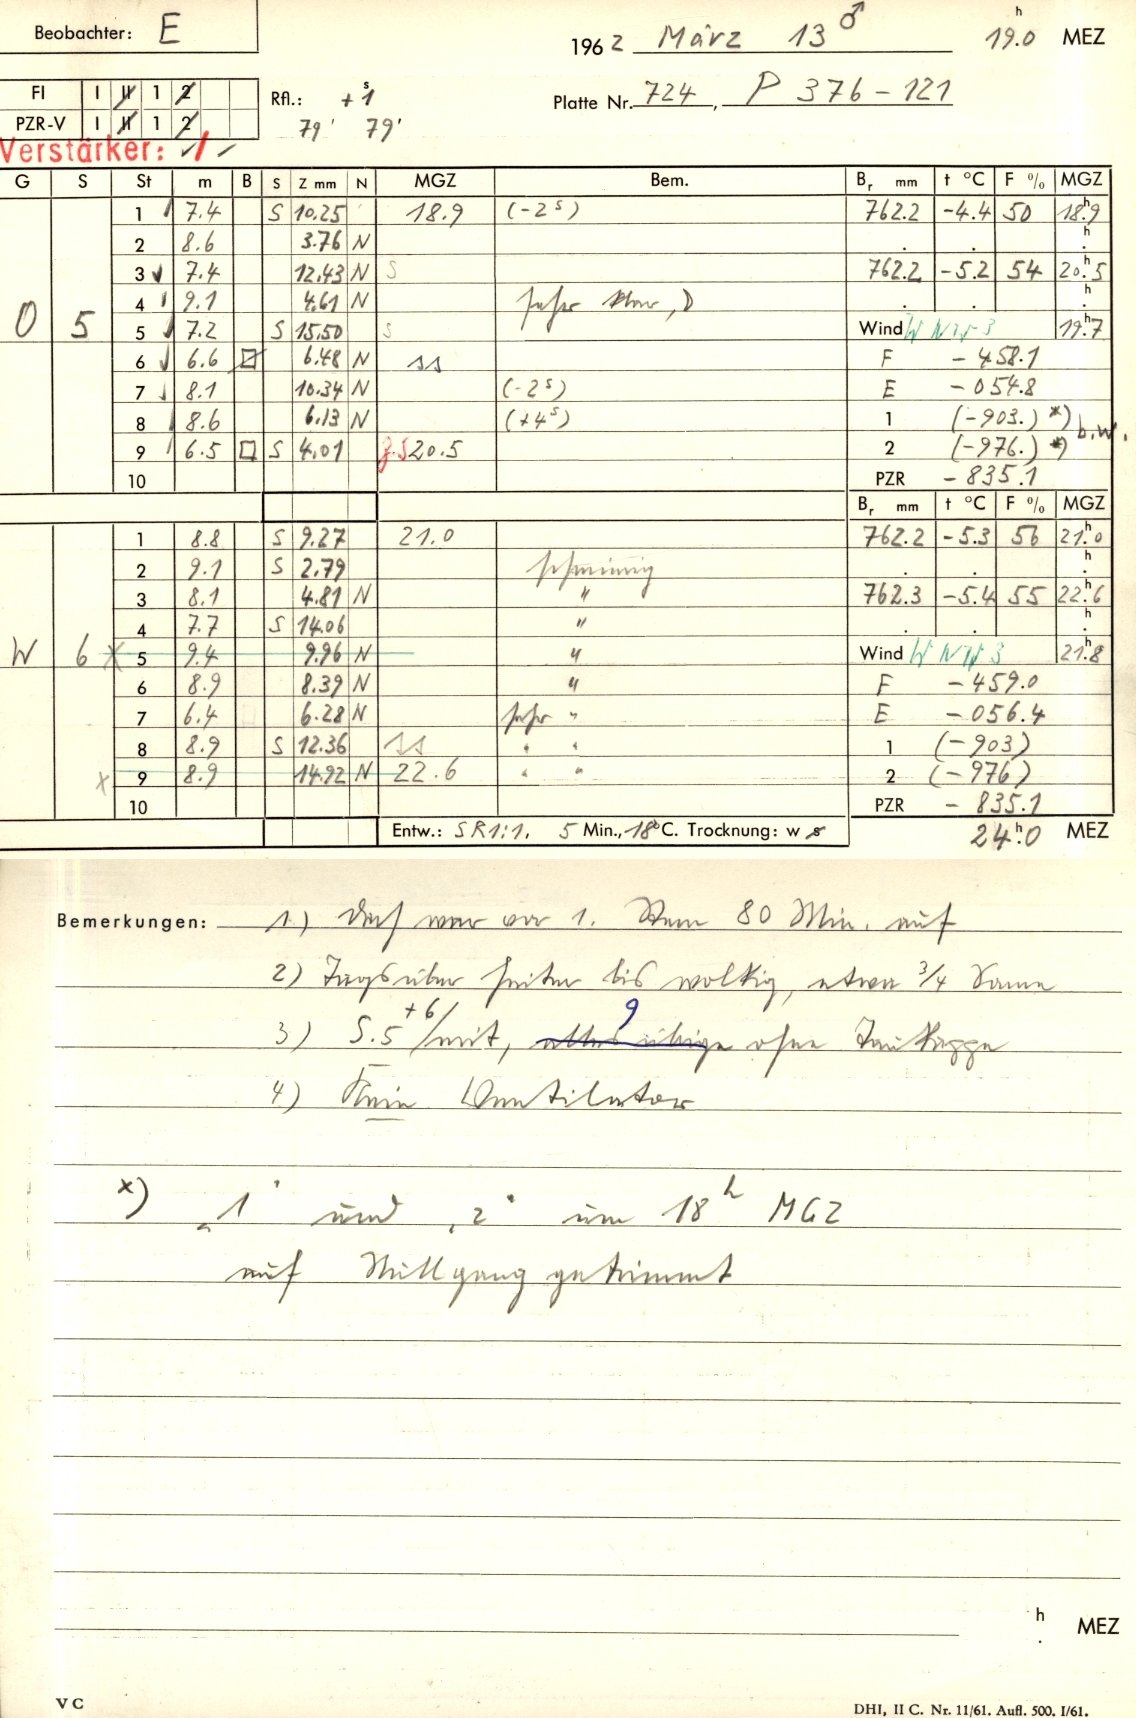 Beobachter: E
1962 März 13 ♂ 19.0 h MEZ
FI I II 1 2
Rfl.: + 1 s
Platte Nr. 724, P 376-121
PZR-V I II 1 2
79' 79'
Verstärker: ✓ / ✓
G S St m B S Z mm N MGZ Bem. Br mm t °C F % MGZ
1 7.4 S 10.25 18.9 (-2 s) 762.2 -4.4 50 18.9 h
2 8.6 3.76 N . . h .
3 7.4 12.43 N S 762.2 -5.2 54 20.5 h
4 9.1 4.61 N sehr klar, . . h .
O 5 5 7.2 S 15.50 S Wind WNW 3 19.7 h
6 6.6 6.48 N ss F -458.1
7 8.1 10.34 N (-2 s) E -054.8
8 8.6 6.13 N (+4 s) 1 (-903.) *) b.w.
9 6.5 S 4.01 20.5 2 (-976.) *)
10 PZR -835.1
Br mm t °C F % MGZ
1 8.8 S 9.27 21.0 762.2 -5.3 56 21.0 h
2 9.1 S 2.79 schwierig . . h .
3 8.1 4.81 N " 762.3 -5.4 55 22.6 h
4 7.7 S 14.06 " . . h .
W 6 x 5 9.4 9.96 N " Wind WNW 3 21.8 h
6 8.9 8.39 N " F -459.0
7 6.4 6.28 N sehr " E -056.4
8 8.9 S 12.36 ss " " 1 (-903)
x 9 8.9 14.92 N 22.6 " " 2 (-976)
10 PZR -835.1
Entw.: SR1:1, 5 Min., 18 °C. Trocknung: w s
24.0 h MEZ
Bemerkungen: 1.) Dach war vor 1. Stern 80 Min. auf
2) Tagsüber heiter bis wolkig, etwa 3/4 Sonne
3) S.5 +6 / mit, 9 ohne Taukappe
4) Kein Ventilator
x) "1" und "2" um 18 h MGZ
auf Nullgang getrimmt
h . MEZ
V C
DHI, II C. Nr. 11/61. Aufl. 500. I/61.